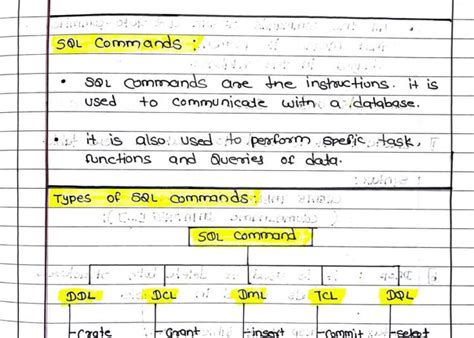 SQL Commands :
• SQL Commands are the instructions. it is
used to communicate with a database.
• it is also used to perform spefic task,
functions and Queries of data.
Types of SQL Commands :
SQL Command
DDL DCL DML TCL DQL
-Crate -Grant -insert -Commit -select